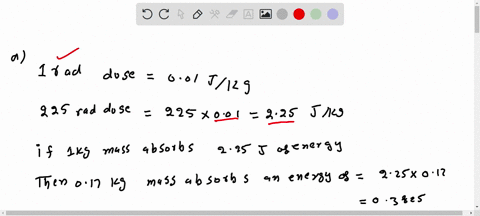 a)
1 rad dose = 0.01 J/kg
225 rad dose = 225 × 0.01 = 2.25 J/kg
if 1kg mass absorbs 2.25 J of energy
Then 0.17 kg mass absorbs an energy of = 2.25 × 0.17
= 0.3825